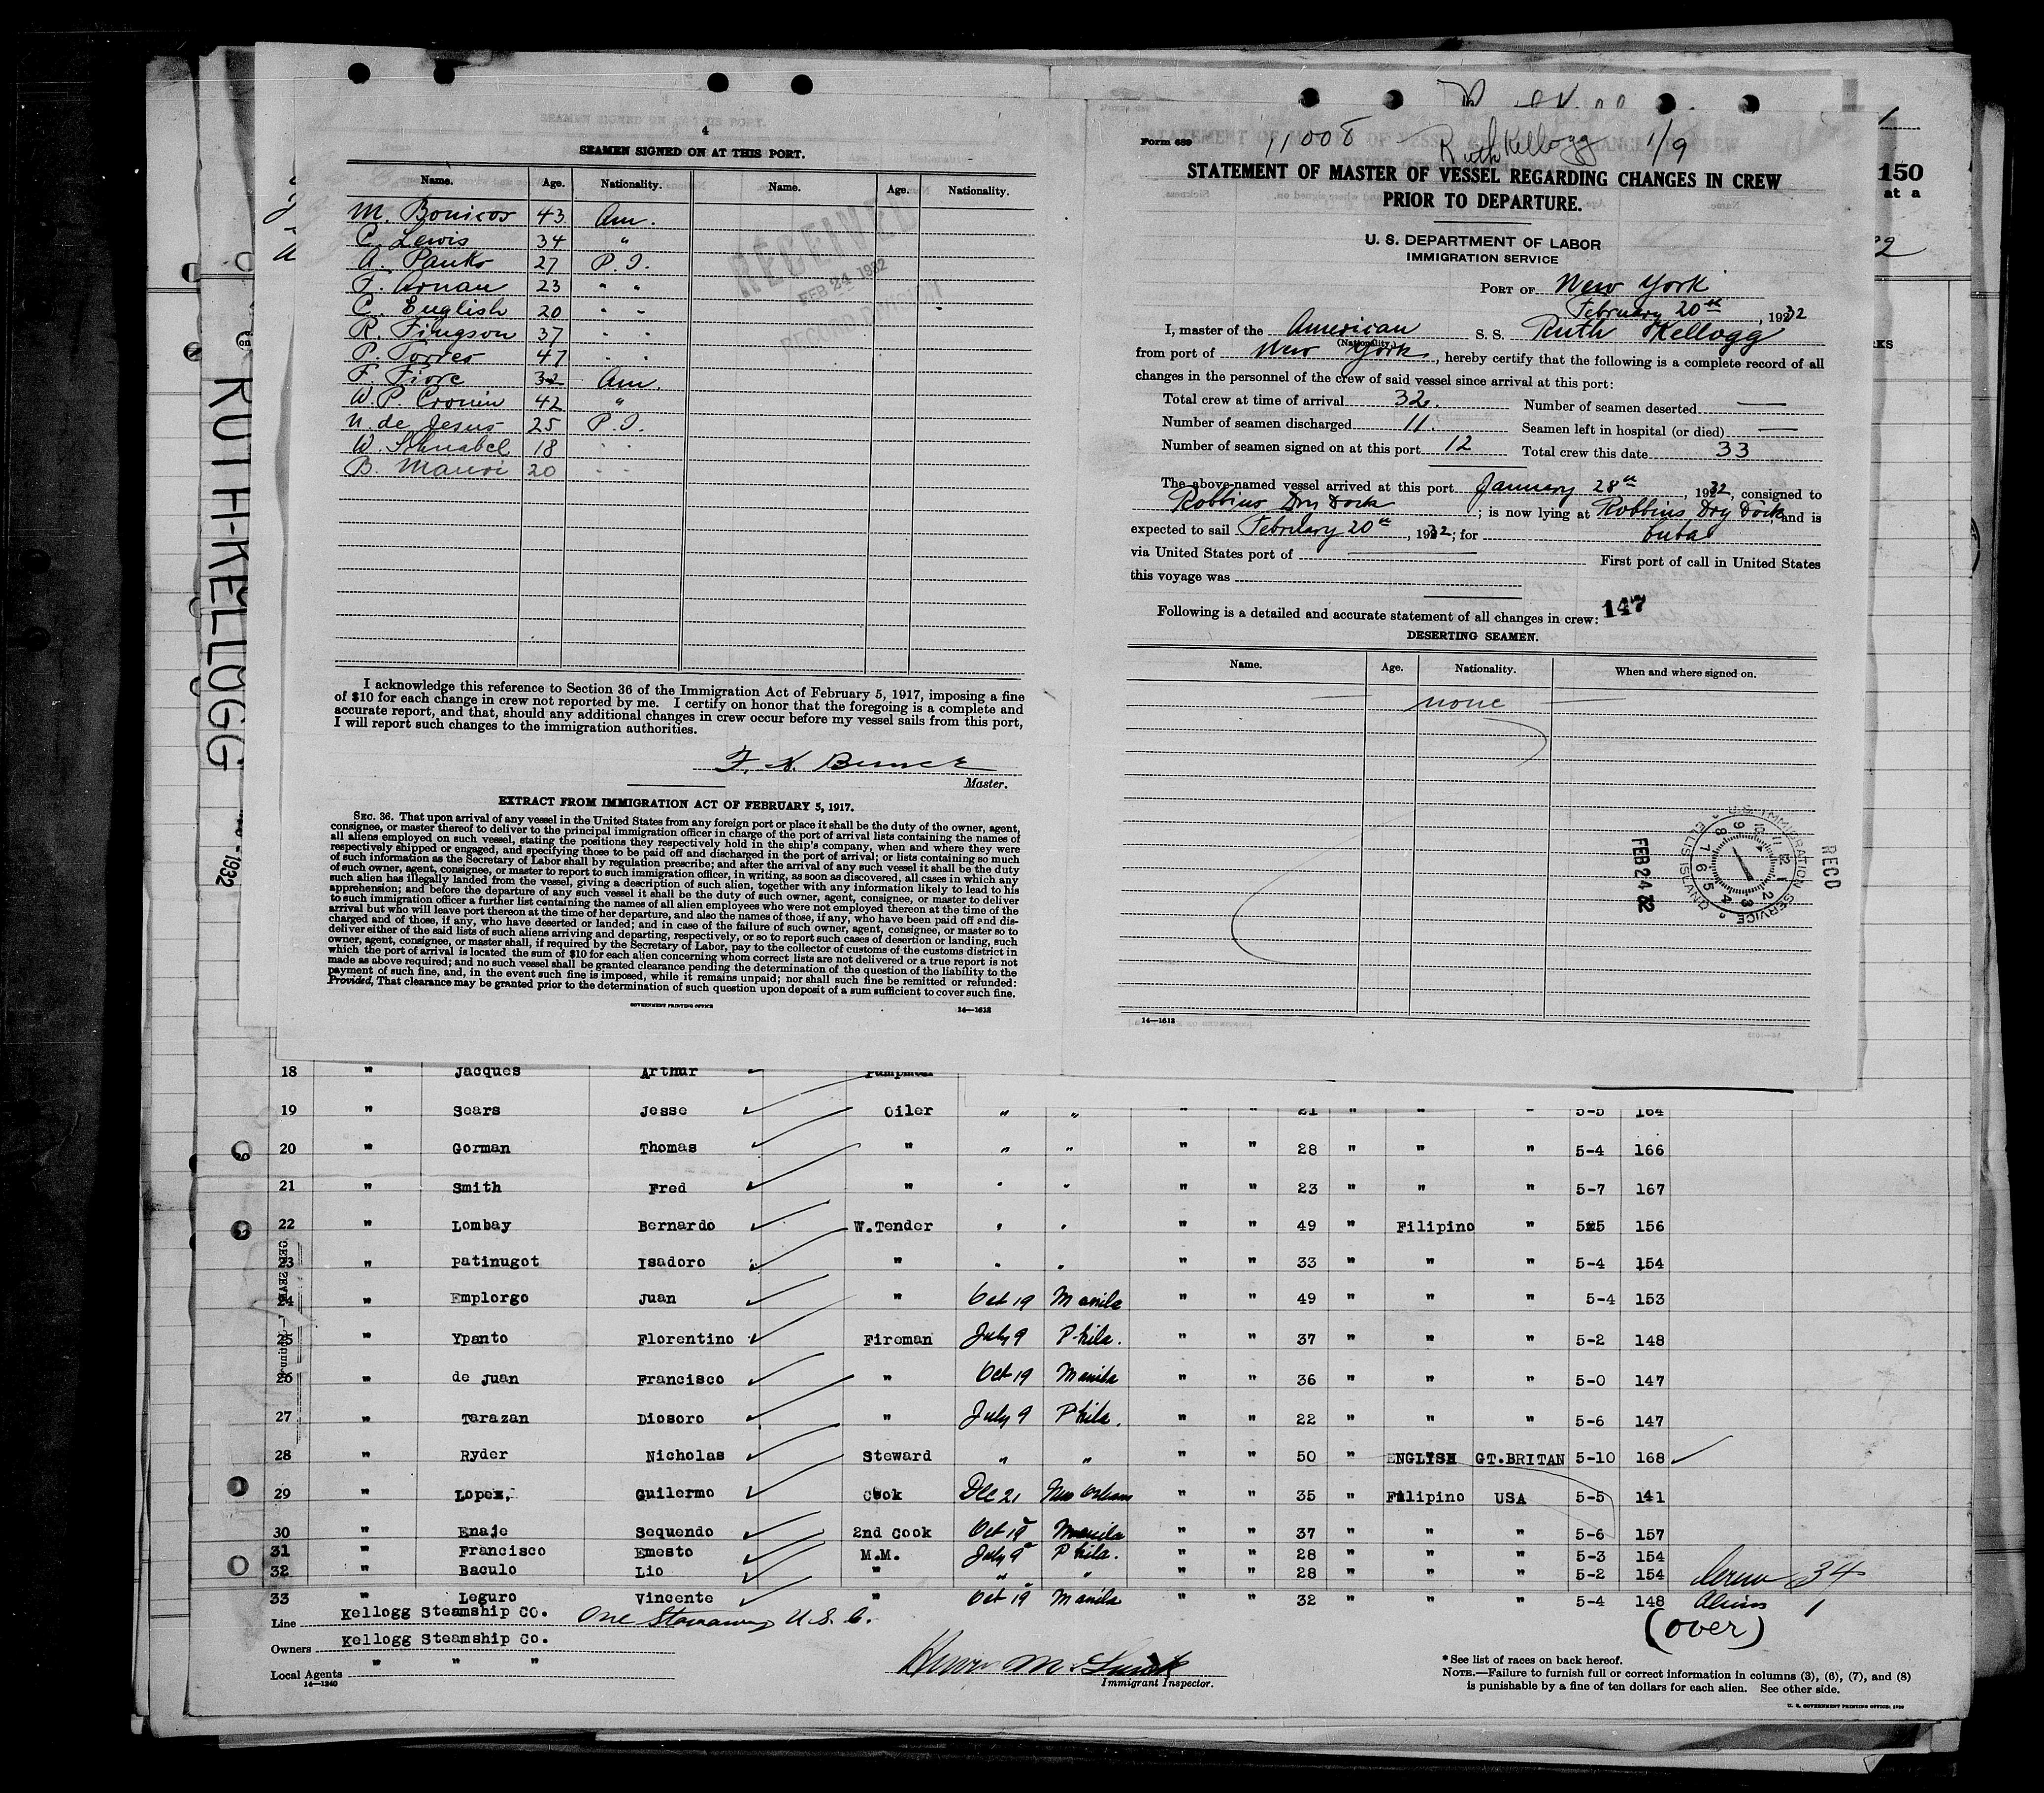 4
SEAMEN SIGNED ON AT THIS PORT.
Name. Age. Nationality. Name. Age. Nationality.
M. Bonicos 43 Am.
C. Lewis 34 "
A. Panks 27 P. I.
F. Arnan 23 " "
C. English 20 " "
R. Fingson 37 " "
P. Torres 47 " "
F. Fiore 32 Am.
W. P. Cronin 42 "
N. de Jesus 25 P. I.
W. Schnabel 18 " "
B. 20 " "
RECEIVED
FEB 24 1932
RECORD DIVISION
I acknowledge this reference to Section 36 of the Immigration Act of February 5, 1917, imposing a fine
of $10 for each change in crew not reported by me. I certify on honor that the foregoing is a complete and
accurate report, and that, should any additional changes in crew occur before my vessel sails from this port,
I will report such changes to the immigration authorities.
Master.
EXTRACT FROM IMMIGRATION ACT OF FEBRUARY 5, 1917.
SEC. 36. That upon arrival of any vessel in the United States from any foreign port or place it shall be the duty of the owner, agent,
consignee, or master thereof to deliver to the principal immigration officer in charge of the port of arrival lists containing the names of
all aliens employed on such vessel, stating the positions they respectively hold in the ship's company, when and where they were
respectively shipped or engaged, and specifying those to be paid off and discharged in the port of arrival; or lists containing so much
of such information as the Secretary of Labor shall by regulation prescribe; and after the arrival of any such vessel it shall be the duty
of such owner, agent, consignee, or master to report to such immigration officer, in writing, as soon as discovered, all cases in which any
such alien has illegally landed from the vessel, giving a description of such alien, together with any information likely to lead to his
apprehension; and before the departure of any such vessel it shall be the duty of such owner, agent, consignee, or master to deliver
to such immigration officer a further list containing the names of all alien employees who were not employed thereon at the time of the
arrival but who will leave port thereon at the time of her departure, and also the names of those, if any, who have been paid off and dis-
charged and of those, if any, who have deserted or landed; and in case of the failure of such owner, agent, consignee, or master so to
deliver either of the said lists of such aliens arriving and departing, respectively, or so to report such cases of desertion or landing, such
owner, agent, consignee, or master shall, if required by the Secretary of Labor, pay to the collector of customs of the customs district in
which the port of arrival is located the sum of $10 for each alien concerning whom correct lists are not delivered or a true report is not
made as above required; and no such vessel shall be granted clearance pending the determination of the question of the liability to the
payment of such fine, and, in the event such fine is imposed, while it remains unpaid; nor shall such fine be remitted or refunded:
Provided, That clearance may be granted prior to the determination of such question upon deposit of a sum sufficient to cover such fine.
GOVERNMENT PRINTING OFFICE 14—1613
Form 689 11008 Ruth Kellogg 1/9
STATEMENT OF MASTER OF VESSEL REGARDING CHANGES IN CREW
PRIOR TO DEPARTURE.
U. S. DEPARTMENT OF LABOR
IMMIGRATION SERVICE
PORT OF New York
February 20th, 1932
I, master of the American S. S. Ruth Kellogg
(Nationality.)
from port of New York, hereby certify that the following is a complete record of all
changes in the personnel of the crew of said vessel since arrival at this port:
Total crew at time of arrival 32. Number of seamen deserted —
Number of seamen discharged 11. Seamen left in hospital (or died) —
Number of seamen signed on at this port 12 Total crew this date 33
The above-named vessel arrived at this port January 28th, 1932, consigned to
Robbins Dry Dock; is now lying at Robbins Dry Dock, and is
expected to sail February 20th, 1932; for Cuba
via United States port of — First port of call in United States
this voyage was
Following is a detailed and accurate statement of all changes in crew: 147
DESERTING SEAMEN.
Name. Age. Nationality. When and where signed on.
none
RECD
IMMIGRATION SERVICE
ELLIS ISLAND
FEB 24 32
14—1613
150
at a
RUTH-KELLOGG
1932
18 " Jacques Arthur Pumpman
19 " Sears Jesse Oiler " " " " 21 " " " 5-5 164
20 " Gorman Thomas " " " " " 28 " " " 5-4 166
21 " Smith Fred " " " " " 23 " " " 5-7 167
22 " Lombay Bernardo W.Tender " " " " 49 " Filipino " 5-5 156
23 " Patinugot Isadoro " " " " " 33 " " " 5-4 154
24 " Emplorgo Juan " Oct 19 Manila " " 49 " " " 5-4 153
25 " Ypanto Florentino Fireman July 9 Phila. " " 37 " " " 5-2 148
26 " de Juan Francisco " Oct 19 Manila " " 36 " " " 5-0 147
27 " Tarazan Diosoro " July 9 Phila. " " 22 " " " 5-6 147
28 " Ryder Nicholas Steward " " " " 50 " ENGLISH GT.BRITAN 5-10 168
29 " Lopez, Guilermo Cook Dec 21 New Orleans " " 35 " Filipino USA 5-5 141
30 " Enaje Sequendo 2nd Cook Oct 19 Manila " " 37 " " " 5-6 157
31 " Francisco Emesto M.M. July 9 Phila. " " 28 " " " 5-3 154
32 " Baculo Lio " " " " " 28 " " " 5-2 154
33 " Leguro Vincente " Oct 19 Manila " " 32 " " " 5-4 148
Crew 34
Aliens 1
(over)
Line Kellogg Steamship CO. One Stowaway U.S.C.
Owners Kellogg Steamship Co.
Local Agents " " "
14—1240
Immigrant Inspector.
*See list of races on back hereof.
NOTE.—Failure to furnish full or correct information in columns (3), (6), (7), and (8)
is punishable by a fine of ten dollars for each alien. See other side.